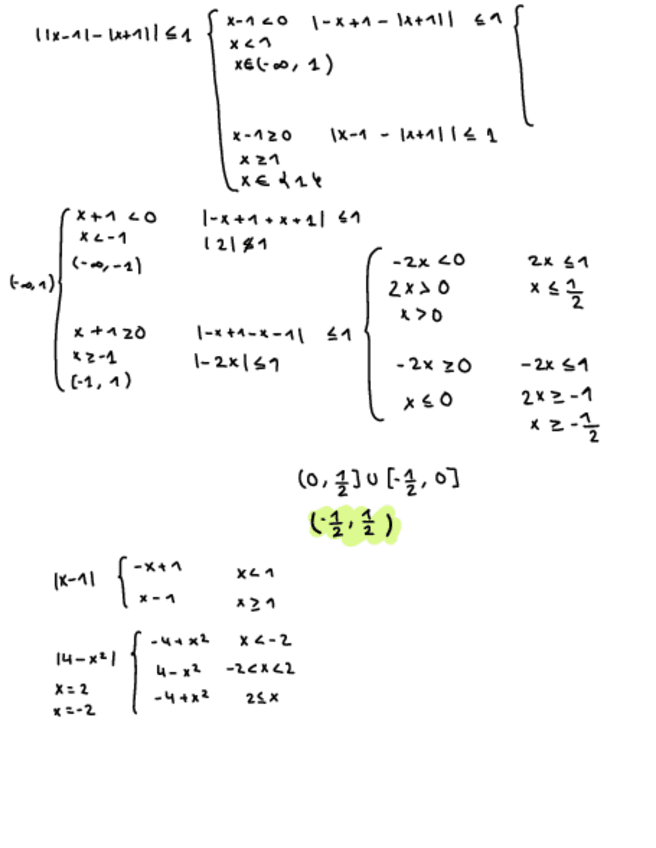 ||x-1|-|x+1|| ≤ 1
x-1<0 |-x+1-|x+1|| ≤1
x<1
x∈(-∞, 1)
x-1≥0 |x-1 - |x+1|| ≤ 1
x≥1
x∈ {1}
(-∞,1)
x+1<0 |-x+1+x+1| ≤1
x<-1 |2|≰1
(-∞,-1)
x+1≥0 |-x+1-x-1| ≤1
x≥-1 |-2x|≤1
[-1, 1)
-2x<0 2x≤1
2x>0 x≤ 1/2
x>0
-2x≥0 -2x≤1
x≤0 2x≥-1
x≥-1/2
(0, 1/2]∪[-1/2, 0]
(-1/2, 1/2)
|x-1| -x+1 x<1
x-1 x≥1
|4-x²| -4+x² x<-2
4-x² -2<x<2
-4+x² 2≤x
x=2
x=-2